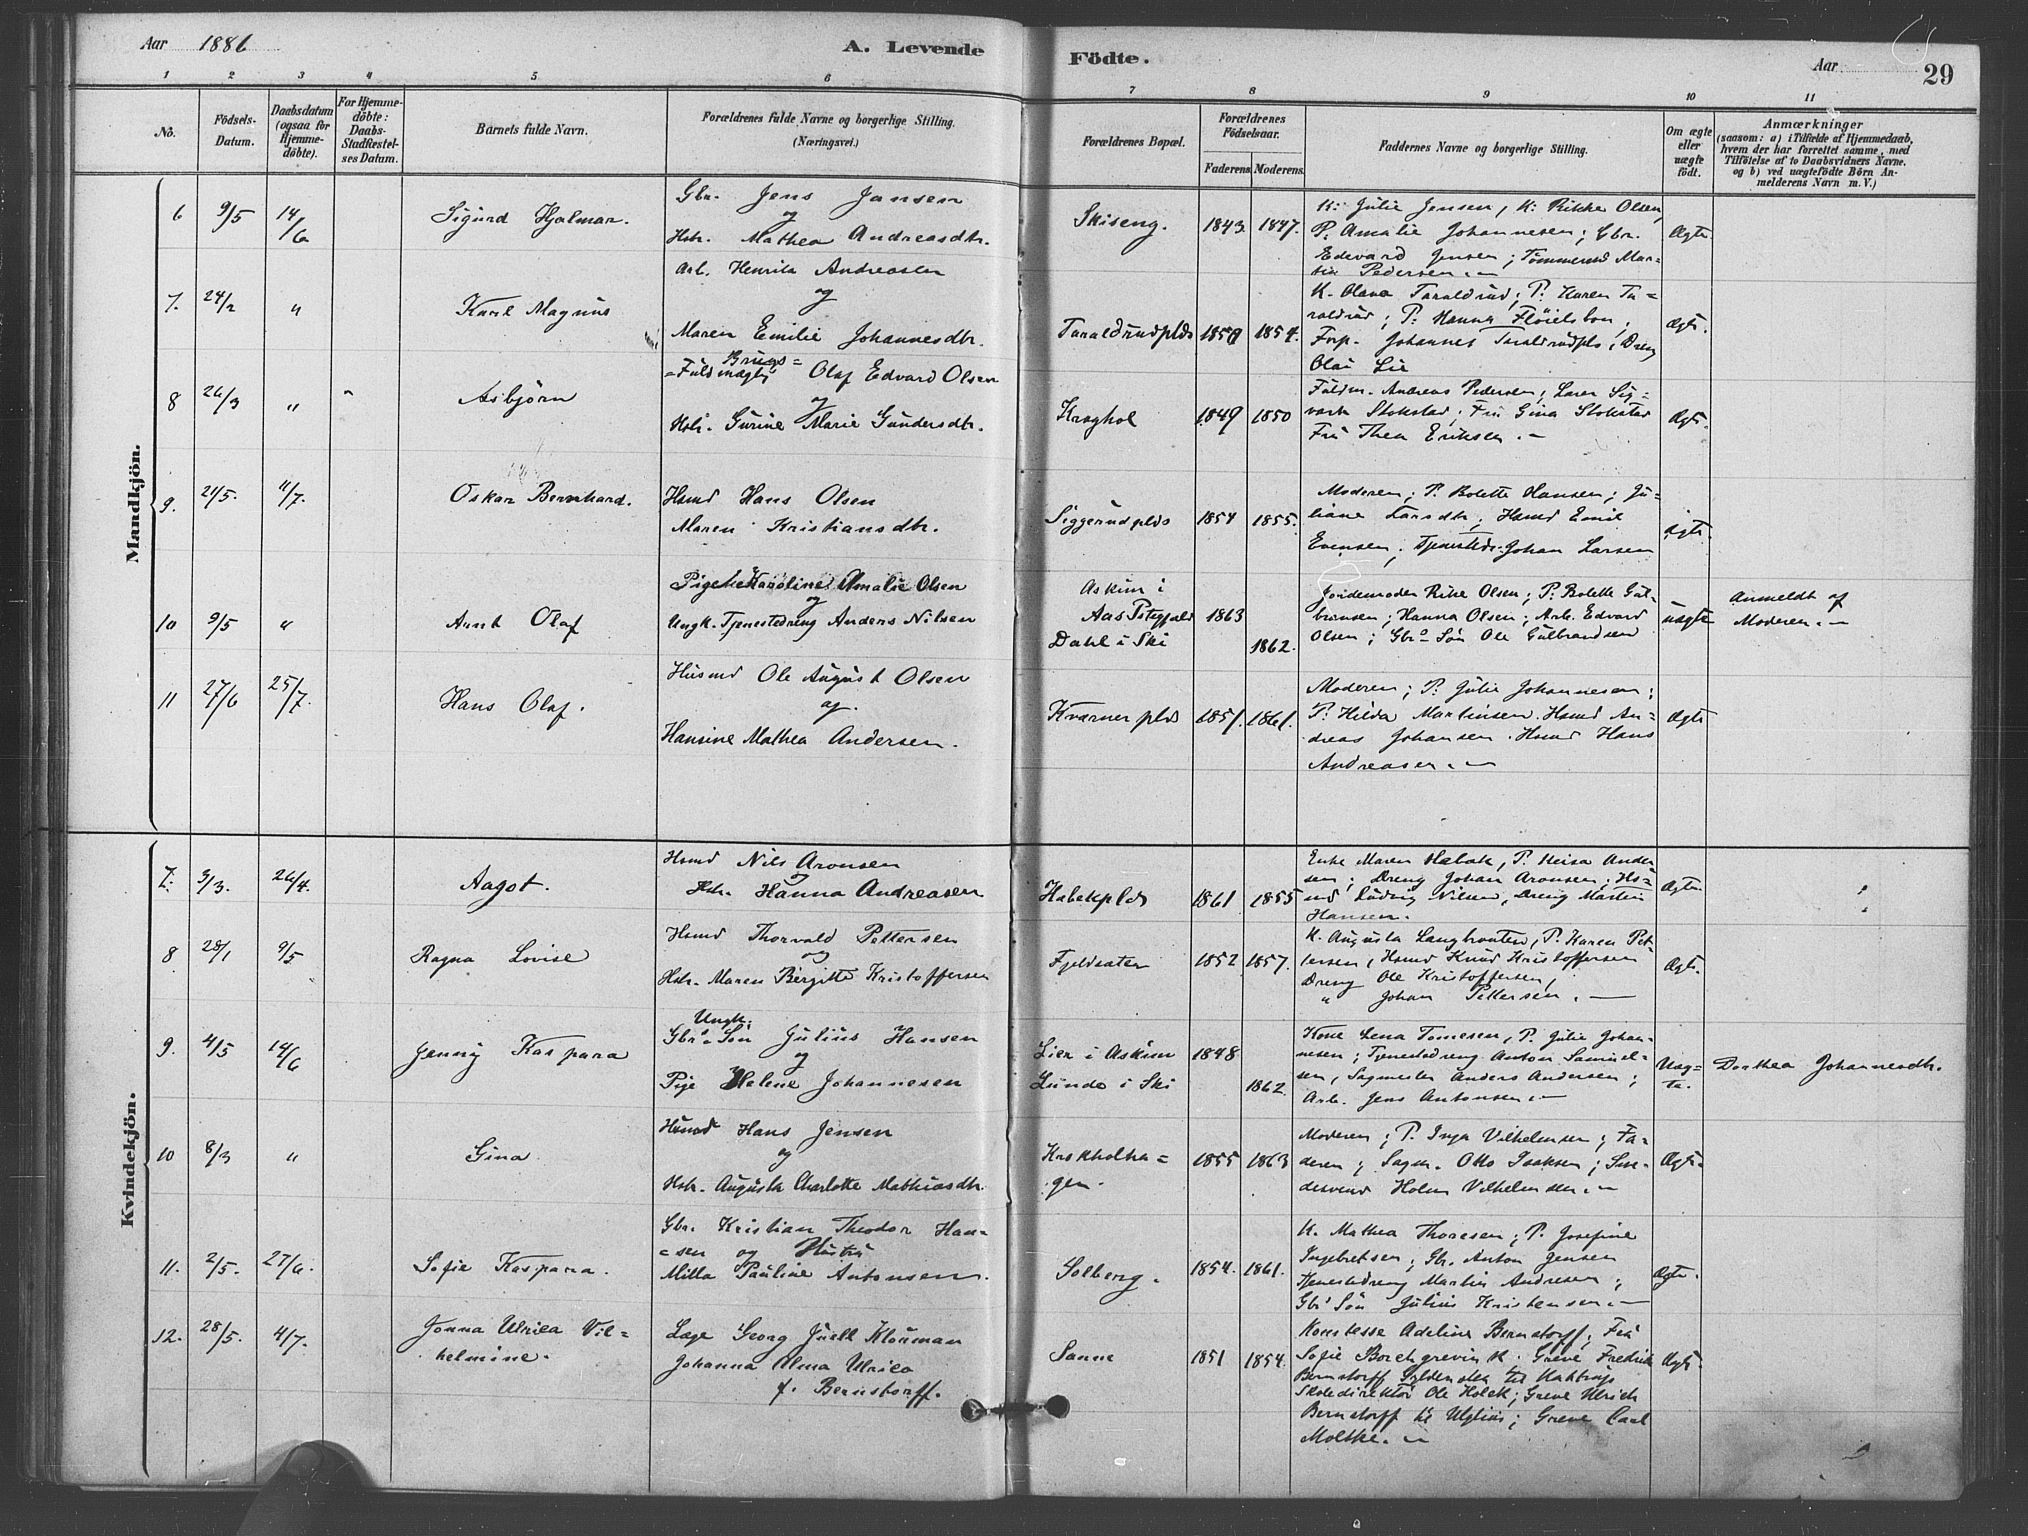 Aar 1886 A. Levende Födte. Aar 29
1 2 3 4 5 6 7 8 9 10 11
No.
Födsels-
Datum.
Daabsdatum
(ogsaa for
Hjemme-
döbte).
For Hjemme-
döbte:
Daabs-
Stadfæstel-
ses Datum.
Barnets fulde Navn.
Forældrenes fulde Navne og borgerlige Stilling.
(Næringsvei.)
Forældrenes Bopæl.
Forældrenes
Födselsaar.
Faderens Moderens
Faddernes Navne og borgerlige Stilling.
Om ægte
eller
uægte
födt.
Anmærkninger
(saasom: a) i Tilfælde af Hjemmedaab,
hvem der har forrettet samme, med
Tilföielse af to Daabsvidners Navne,
og b) ved uægtefödte Börn An-
melderens Navn m. V.)
Mandkjön.
6 9/5 14/6 Sigurd Hjalmar.
Gbr. Jens Jansen
og
Hstr. Mathea Andreasdtr.
Skiseng. 1843. 1847.
K: Julie Jensen, K: Rikke Olsen,
P: Amalie Johannesen; Gbr.
Edevard Jensen; Tømmermd Mar-
tin Pedersen. —
Ægte
7. 24/2 " Karl Magnus
Arb. Henrik Andreasen
og
Maren Emilie Johannesdtr.
Taraldrudplds 1850 1854.
K. Olava Taraldrud; P: Karen Ta=
raldrud; P: Hanna Fløielsbon;
Forp. Johannes Taraldrudpls; Dreng
Olai Lie
Ægte.
8 26/3 " " Asbjörn
Brugs=
=Fuldmægtig Olaf Edvard Olsen
og
Hstr. Gurine Marie Gundersdtr.
Kroghol 1849 1850
Fuldm. Andreas Pedersen; Lærer Sig-
vart Stokstad; Fru Gina Stokstad
Fru Thea Eriksen. —
Ægte.
9. 21/5. 11/7. Oskar Bernhard.
Hsmd Hans Olsen
Maren Kristiansdtr.
Siggerudplds 1854 1855.
Moderen; P. Bolette Hansen; Ju-
liane Larsdtr; Hsmd Emil
Evensen; Tjenestedr. Johan Larsen
Ægte.
10 9/5 " Arnt Olaf
Pige Karoline Amalie Olsen
og
Ungk. Tjenestedreng Anders Nilsen
Askim i
Aas Dahl i Ski
1863
1862.
Jordemoder Rike Olsen; P. Bolette Gul-
bransen; Hanna Olsen; Arb. Edvard
Olsen; Gbr. Søn Ole Gulbrandsen
uægte
Anmeldt af
Moderen. —
11 27/6 25/7. Hans Olaf.
Husmd Ole August Olsen
og.
Hansine Mathea Andersen.
Kværnerplds 1857. 1861.
Moderen; P: Julie Johannesen;
P: Hilda Martinsen. Hsmd An=
dreas Johansen. Hsmd Hans
Andreasen. —
Ægte
Kvindekjön.
7. 3/3. 26/4. Aagot.
Hsmd Nils Aronsen
og
Hstr. Hanna Andreasen
Habækplds 1861 1855
Enke Maren Habæk, P. Ander-
sen; Dreng Johan Aronsen; Hs-
md Ludvig Nilsen, Dreng Martin
Hansen.
Ægte.
8 28/1 9/5 Ragna Lovise
Hsmd Thorvald Pettersen
og
Hstr. Maren Birgitte Kristoffersen
Fjeldsæter 1852 1857.
K. Augusta Langbraaten, P. Karen Pet-
tersen, Hsmd Knud Kristoffersen
Dreng Ole Kristoffersen,
" Johan Pettersen. —
Ægte.
9. 4/5 14/6 Jenny Kaspara
Ungk.
Gbr. Søn Julius Hansen
og
Pige Helene Johannesen
Lier i Askim 1848
Lunde i Ski 1862.
Kone Lena Tomesen, P. Julie Johan-
nesen; Tjenestedreng Anton Samuel-
sen, Sagmester Anders Andersen;
Arb. Jens Antonsen. —
Uæg-
te.
Dorthea Johannesdtr.
10 8/3 " Gina.
Husmd Hans Jensen
og
Hstr. Augusta Charlotte Mathiasdtr.
Krokholha=
gen.
1855 1863
Moderen; P. Inga Vilhelmsen; Fa-
deren; Sagm. Otto Isaksen; Sme-
desvend Holm Vilhelmsen. —
Ægte.
11. 2/5. 27/6. Sofie Kaspara.
Gbr. Kristian Theodor Han-
=sen og Hustru
Milla Pauline Antonsen.
Solberg. 1854. 1861.
K. Mathea Thoresen; P. Josefine
Ingebretsen; Gbr. Anton Jensen
Tjenestedreng Martin Andresen;
Gbr. Søn Julius Kristensen. —
Ægte.
12. 28/5. 4/7. Jonna Ulrica Vil=
helmine.
Læge Georg Juell Klouman
Johanna Alma Ulrica
f. Bernstorff.
Sanne 1851 1854.
Komtesse Adeline Bernstorff; Fru
Sofie Borchgrevink. Greve Fredrik
Bernstorff Gyldensten til
Skoledirektør Ole Holck; Greve Ulrich
Bernstorff; Greve Carl
Moltke. —
Ægte